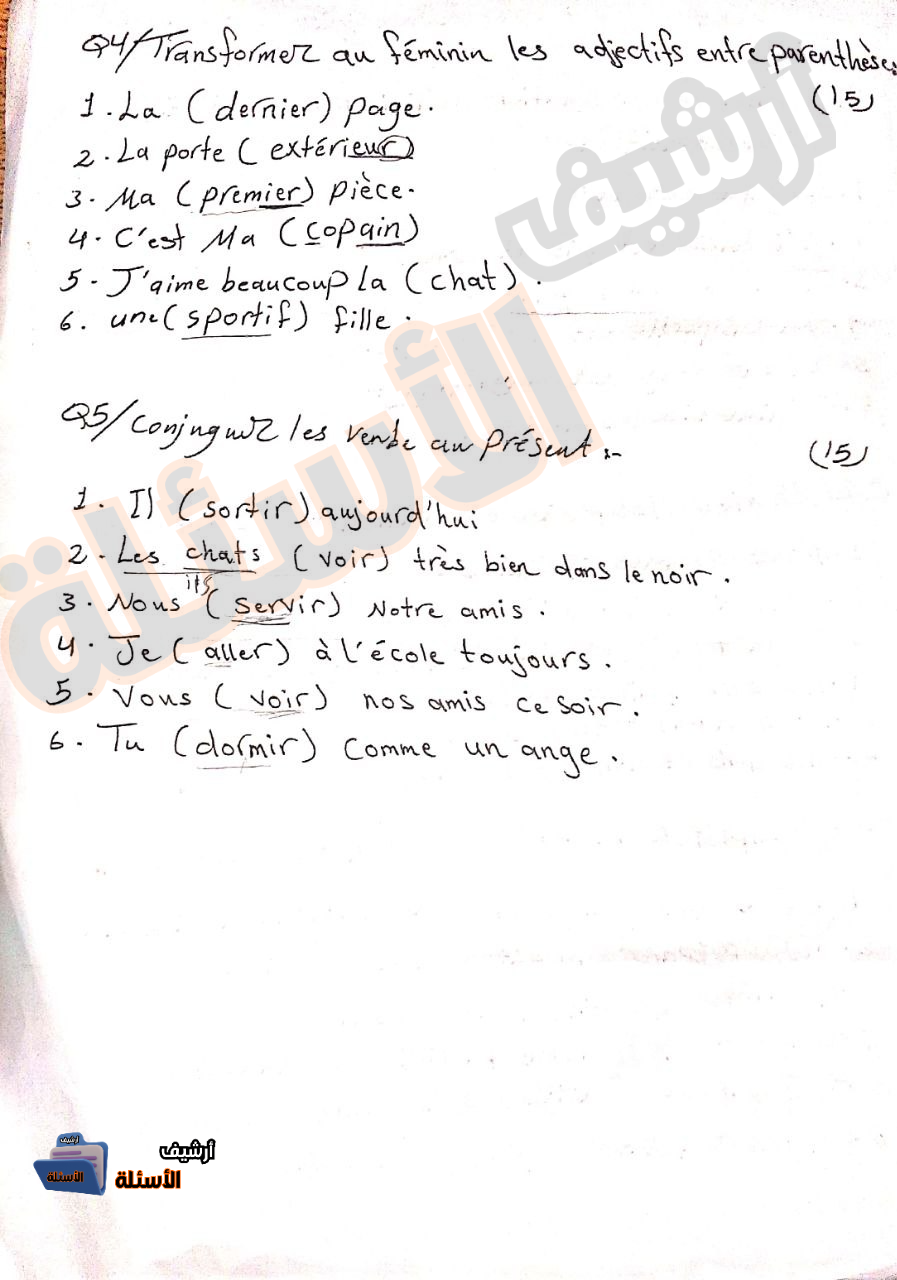 Q4/Transformez au féminin les adjectifs entre parenthèses
(15)
1. La (dernier) page.
2. La porte (extérieur)
3. Ma (premier) pièce.
4. C'est Ma (copain)
5- J'aime beaucoup la (chat).
6. une (sportif) fille.
Q5/Conjuguez les verbe au Présent :-
(15)
1. Il (sortir) aujourd'hui
2. Les chats (voir) très bien dans le noir.
ils
3. Nous (servir) Notre amis.
4. Je (aller) à l'école toujours.
5. Vous (voir) nos amis ce soir.
6. Tu (dormir) comme un ange.
أرشيف
الأسئلة
أرشيف
الأسئلة
أرشيف
الأسئلة